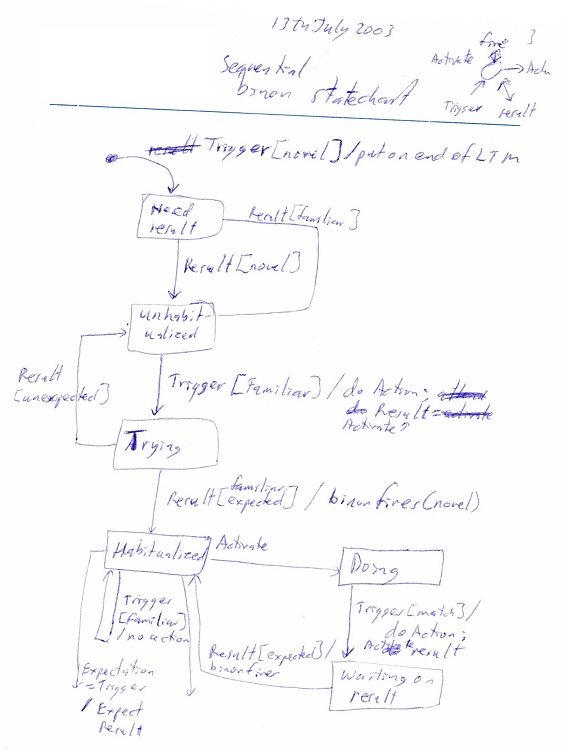 13th July 2003
Sequential
binon statechart
fire
Activate
Trigger
result
3
Trigger [novel] / put on end of LTM
Need
result
Result [familiar]
Result [novel]
unhabit-
ualized
Result
[unexpected]
Trigger [Familiar] / do Action;
Result =
Activate?
Trying
familiar
Result [expected] / binon fires (novel)
Habitualized
Activate
Doing
Trigger
[familiar]
/ no action
Trigger [match] /
do Action;
result
Result [expected] /
binon fires
Waiting on
result
Expectation
= Trigger
/ Expect
Result